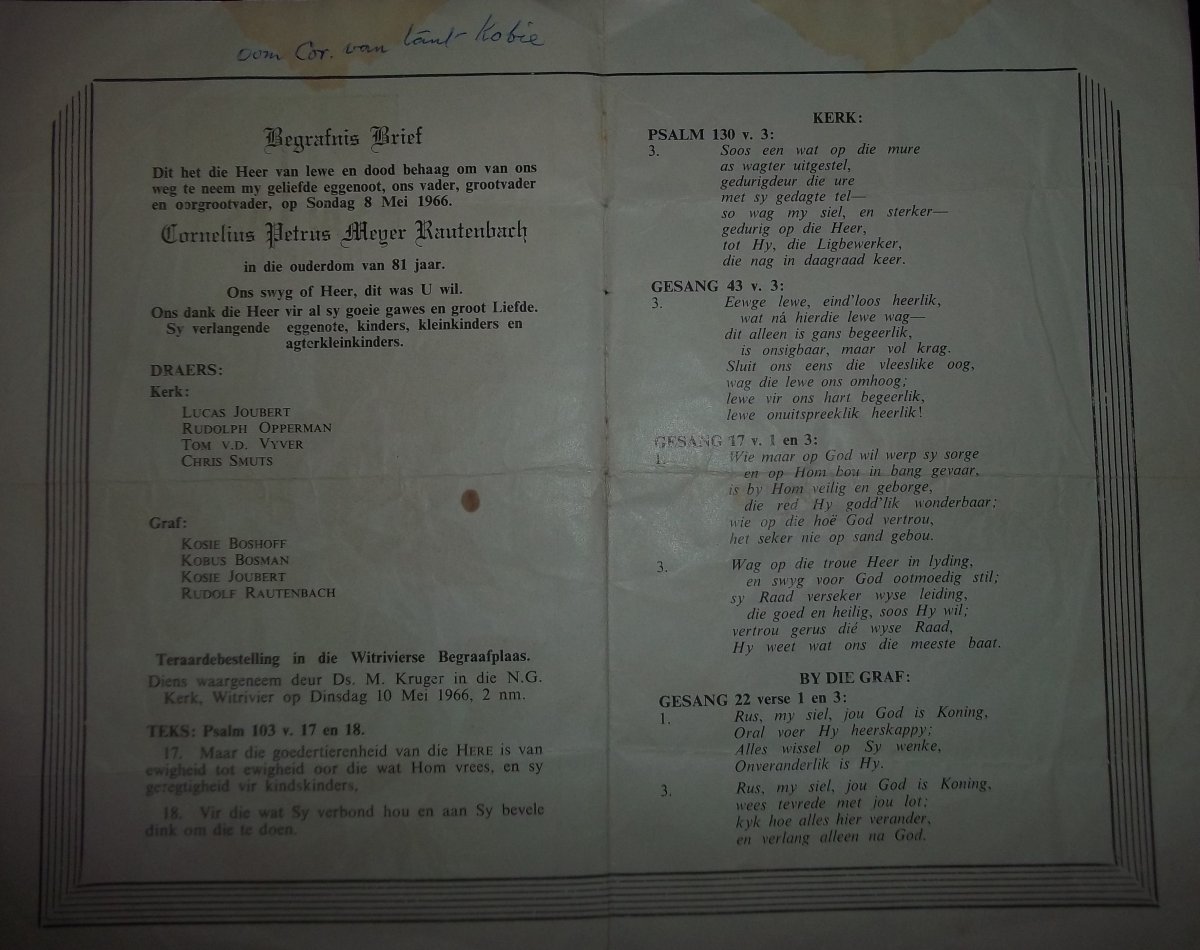 oom Cor. van tant Kobie
Begrafnis Brief
Dit het die Heer van lewe en dood behaag om van ons
weg te neem my geliefde eggenoot, ons vader, grootvader
en oorgrootvader, op Sondag 8 Mei 1966.
Cornelius Petrus Meyer Rautenbach
in die ouderdom van 81 jaar.
Ons swyg of Heer, dit was U wil.
Ons dank die Heer vir al sy goeie gawes en groot Liefde.
Sy verlangende eggenote, kinders, kleinkinders en
agterkleinkinders.
DRAERS:
Kerk:
LUCAS JOUBERT
RUDOLPH OPPERMAN
TOM V.D. VYVER
CHRIS SMUTS
Graf:
KOSIE BOSHOFF
KOBUS BOSMAN
KOSIE JOUBERT
RUDOLF RAUTENBACH
Teraardebestelling in die Witrivierse Begraafplaas.
Diens waargeneem deur Ds. M. Kruger in die N.G.
Kerk, Witrivier op Dinsdag 10 Mei 1966, 2 nm.
TEKS: Psalm 103 v. 17 en 18.
17. Maar die goedertierenheid van die HERE is van
ewigheid tot ewigheid oor die wat Hom vrees, en sy
geregtigheid vir kindskinders,
18. Vir die wat Sy verbond hou en aan Sy bevele
dink om die te doen.
KERK:
PSALM 130 v. 3:
3. Soos een wat op die mure
as wagter uitgestel,
gedurigdeur die ure
met sy gedagte tel—
so wag my siel, en sterker—
gedurig op die Heer,
tot Hy, die Ligbewerker,
die nag in daagraad keer.
GESANG 43 v. 3:
3. Eewge lewe, eind'loos heerlik,
wat ná hierdie lewe wag—
dit alleen is gans begeerlik,
is onsigbaar, maar vol krag.
Sluit ons eens die vleeslike oog,
wag die lewe ons omhoog;
lewe vir ons hart begeerlik,
lewe onuitspreeklik heerlik!
GESANG 17 v. 1 en 3:
1. Wie maar op God wil werp sy sorge
en op Hom bou in bang gevaar,
is by Hom veilig en geborge,
die red Hy godd'lik wonderbaar;
wie op die hoë God vertrou,
het seker nie op sand gebou.
3. Wag op die troue Heer in lyding,
en swyg voor God ootmoedig stil;
sy Raad verseker wyse leiding,
die goed en heilig, soos Hy wil;
vertrou gerus dié wyse Raad,
Hy weet wat ons die meeste baat.
BY DIE GRAF:
GESANG 22 verse 1 en 3:
1. Rus, my siel, jou God is Koning,
Oral voer Hy heerskappy;
Alles wissel op Sy wenke,
Onveranderlik is Hy.
3. Rus, my siel, jou God is Koning,
wees tevrede met jou lot;
kyk hoe alles hier verander,
en verlang alleen na God.